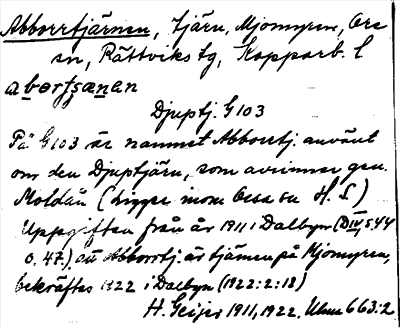 Abborrtjärnen, Tjärn, Mjomyren, Ore
sn, Rättviks tg, Kopparb. l
abərtʂæṇən
Djuptj. G103
På G103 är namnet Abborrtj. använt
om den Djuptjärn, som avrinner gen.
Moldån (ligger inom Orsa sn H. G.)
Uppgiften från år 1911 i Dalbyn (DIV, s. 44
o. 47), att Abborrtj. är tjärnen på Mjomyren,
bekräftas 1922 i Dalbyn (1922:2:18)
H. Geijer 1911, 1922. Ulma 663:2